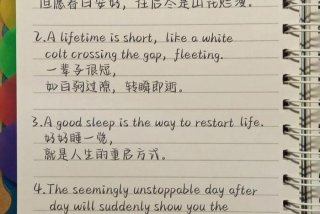 但愿春日安好，往后尽是山花烂漫。
2.A lifetime is short, like a white
colt crossing the gap, fleeting.
一辈子很短，
如白驹过隙，转瞬即逝。
3.A good sleep is the way to restart life.
好好睡一觉，
就是人生的重启方式。
4.The seemingly unstoppable day after
day will suddenly show you the